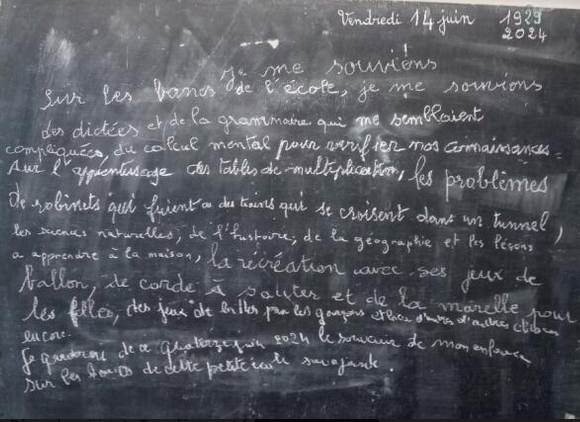 Vendredi 14 juin 1929
2024
je me souviens
Sur les bancs de l'école, je me souviens
des dictées et de la grammaire qui me semblaient
compliquées, du calcul mental pour vérifier nos connaissances.
Sur l'apprentissage des tables de multiplication, les problèmes
de robinets qui fuient ou des trains qui se croisent dans un tunnel,
les naturelles, de l'histoire, de la géographie et les leçons
a apprendre à la maison, la récréation avec ses jeux de
ballon, de corde à sauter et de la marelle pour
les filles, des jeux de billes par les garçons et d'autres
encore.
Je de ce 2024 le souvenir de mon enfance
sur les de cette petite